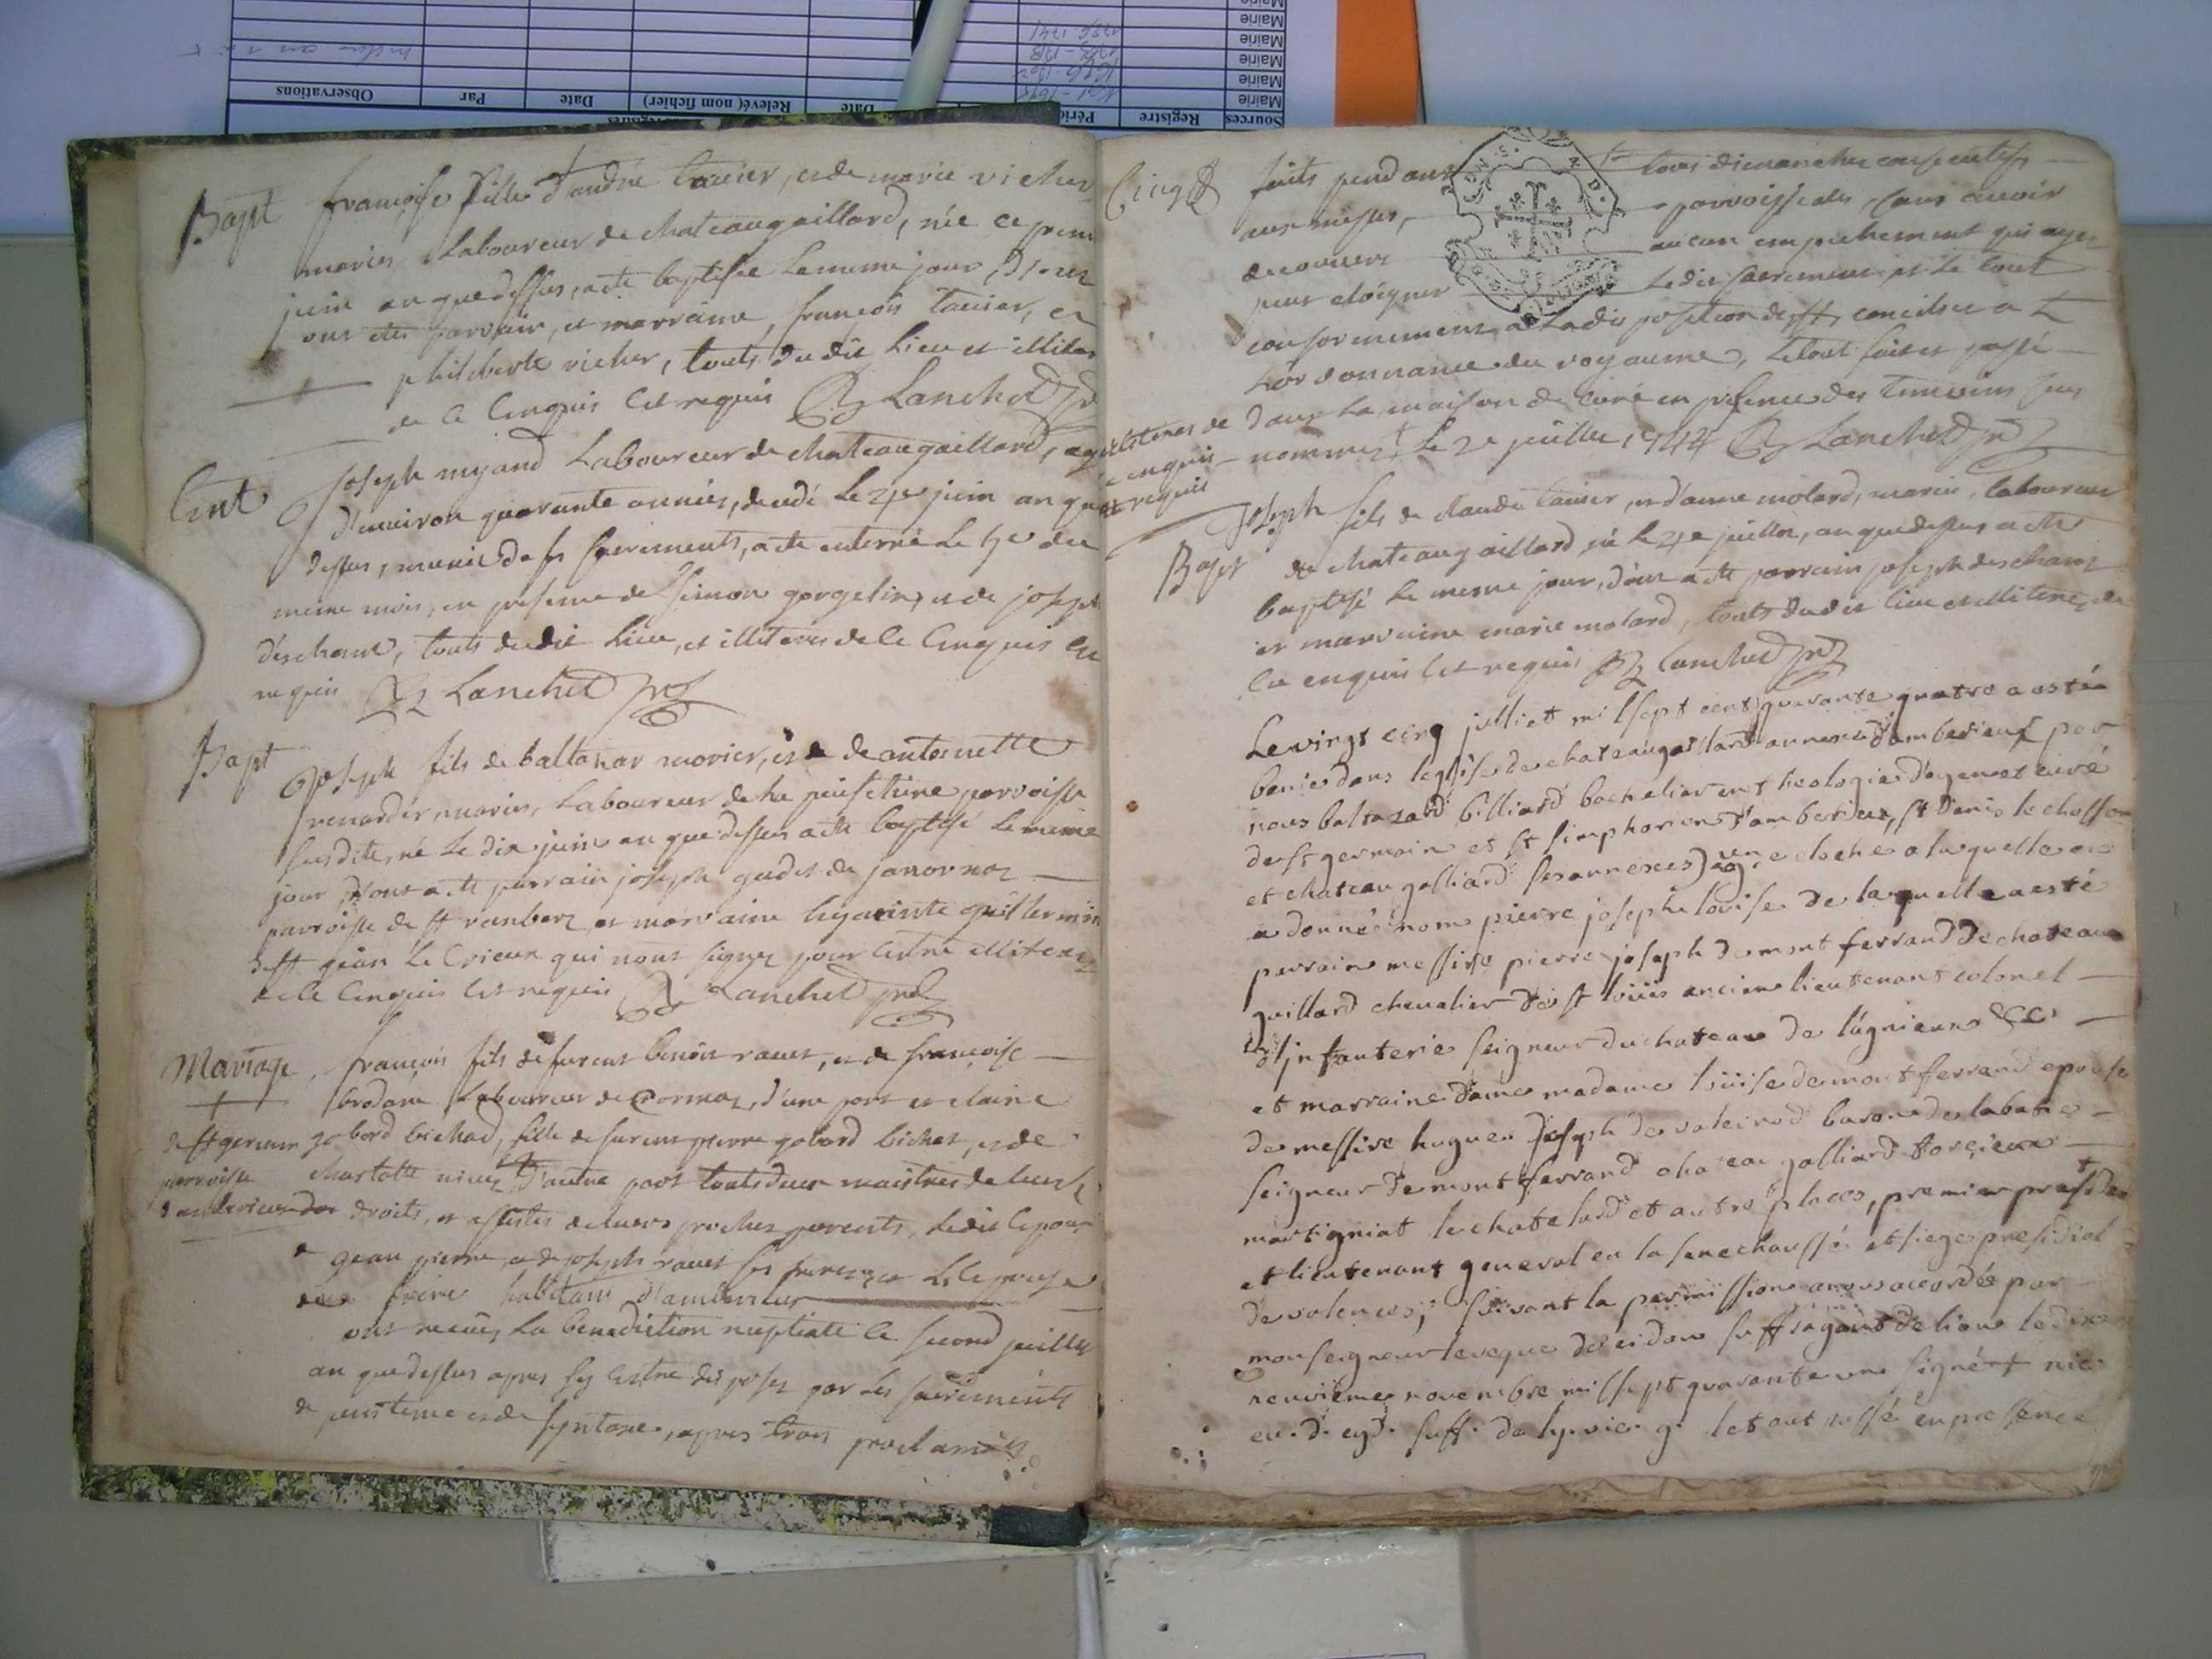 Bapt françoise fille d'andré tavier, et de marie vicher
mariés, Laboureur de chateaugaillard, née ce premi
juin an que dessus, a été baptisée le meme jour, d'ou
ont étés parrain, et marraine, françois tavier, et
philiberte vicher, touts du dit lieu et illiter
de ce enquis et requis Lanchet
Ent Joseph myand Laboureur de chateaugaillard, agé
d'environ quarante années, decedé le 4e juin an que
dessus, munie de ses sacrements, a été enterré le 5e du
meme mois, en presence de simon gorgelin, et de joseph
deschans, touts du dit lieu, et illiteres de ce enquis et
requis Lanchet
Bapt Joseph fils de baltazar morier, et de antoinette
renardér, mariés, Laboureur de la parroisse
susdite, né le dix juin an que dessus a été baptisé le meme
jour, d'ont a été parrain joseph gudet de janornaz
parroisse de st ranbert et marraine hyacinte guillermin
de st jean le vieux qui n'ont signez pour estre illiterez
de ce enquis et requis Lanchet
Mariage françois fils de furent benoit ravet, et de françoise
brodane Laboureur de Cormoz, d'une part et claire
de st germain gobord bichad, fille de furent pierre gobord bichet, et de
parroisse charlotte d'autre part touts deux maistres de leurs
d'amberieux droits, et assistes de leurs proches parents, le dit epoux
de jean pierre, et de joseph ravet ses freres, et l'epouse
frere habitant d'amberieux
ont receus la benediction nuptiale le second juillet
an que dessus apres s'y estre disposez par les sacrements
de penitence et de apres trois proclamées
faits pendant trois dimanches consecutifs
aux messes, parroissales, sans avoir
decouvert aucun empechement qui ayez
peut eloigner le dit sacrement et le tout
conformement a la disposition des sts conciles et a
L'ordonnance du royaume, le tout fait et passé
illiteres de dans la maison de curé en presence des temoins sus
enquis nommez le 2e juillet 1744 Lanchet
et requis
Joseph fils de claude tavier, et d'anne molard, mariés, laboureur
Bapt de chateaugaillard né le 4e juillet, an que dessus a été
baptisé le meme jour, d'ont a été parrain joseph deschans
et marraine marie molard, touts du dit lieu et illiteres de
ce enquis et requis Lanchet
Le vingt cinq julliet mil sept cent quarante quatre a estée
benie dans leglise de chateaugaillard annexe d'amberieux par
nous baltazard billiard bachelier en theologie d'agence et curé
de st germain et st simphorien d'amberieux, st denis le chosson
et chateau galliard ses annexes une cloche a laquelle on
a donné nom pierre joseph louise de laquelle a esté
parrain messire pierre joseph de mont ferrand de chateau
guillard chevalier de st louis ancien lieutenant colonel
d'infanterie seigneur du chateau de lagnieux &c
et marraine dame madame louise de mont ferrand epouse
de messire hugues joseph de valeirnod baron de labatie
seigneur de mont ferrand chateau galliard torcieux
martigniat le chatelard et autre places, premier president
et lieutenant general en la senechaussé et siege presidial
de valence; suivant la permission a nous accordée par
monseigneur leveque de suffragant de lion le dix
neuvieme novembre mil sept quarante un signé + nic.
ev. d. eyd. suff. de ly. vic. g. le tout passé en pressence
Sources Registre Date Relevé( nom fichier) Date Par Observations
Mairie
Mairie
Mairie
Mairie
Mairie